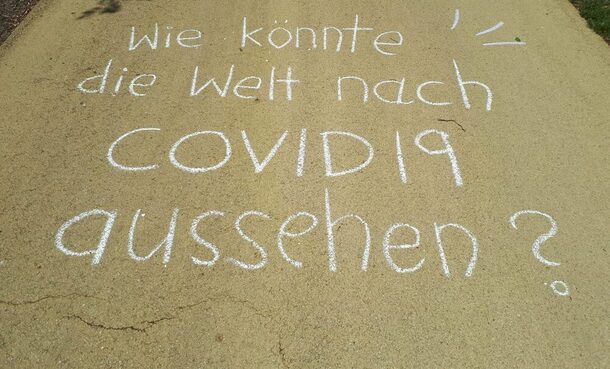 Wie könnte
die Welt nach
COVID19
aussehen?